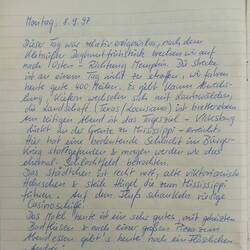 Montag, 8.9.97
Dieser Tag war relativ ereignislos, nach dem
üblichen Jugendfrühstück wechseln wir auf
nach Osten - Richtung Memphis. Die Strecke
ist an einem Tag nicht zu schaffen, wir fahren
heute gute 400 Meilen. Es gibt kaum
Kiefern wechseln sich mit Laubwäldern,
die Landschaft (Texas/Louisiana) ist
Am zeitigen Abend ist das Tagesziel - Vicksburg
direkt an der Grenze zu Mississippi - erreicht.
Hier hat eine bedeutende Schlacht im Bürger-
krieg stattgefunden & morgen werden wir das
ehemal. Schlachtfeld besuchen.
Das Städtchen ist recht nett, alte viktorianische
Häuschen & steile Hügel die zum Mississippi
führen. Auf dem Fluß schaukeln riesige
Casinoschiffe.
Das Motel heute ist ein sehr gutes, mit
& nach einer großen Pizza zum
Abend essen gibt's heute noch ein Fläschchen